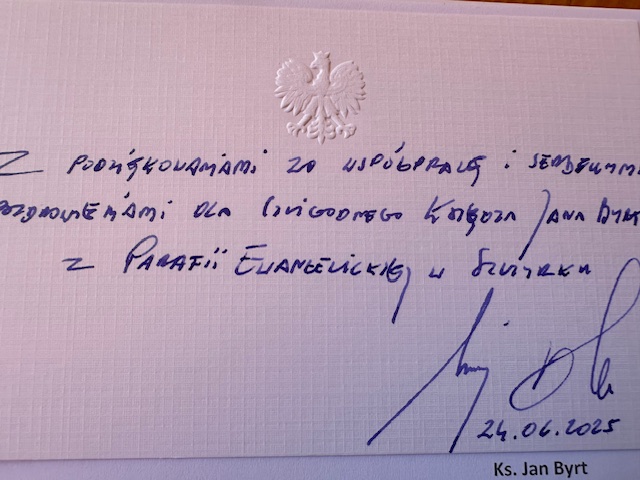 Z PODZIĘKOWANIAMI ZA WSPÓŁPRACĘ i SERDECZNYMI
POZDROWIENIAMI DLA CZCIGODNEGO KSIĘDZA JANA BYRTA
Z PARAFII EWANGELICKIEJ W SZCZYRKU
24.06.2025
Ks. Jan Byrt